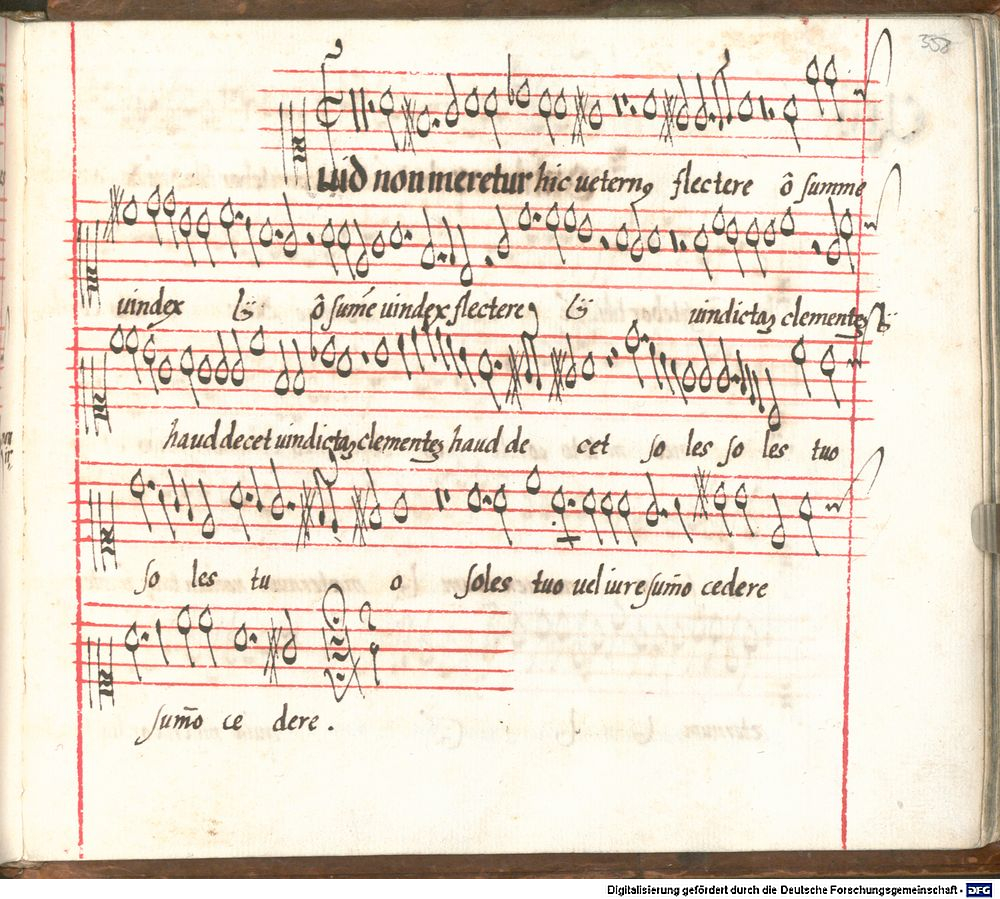 358
uid non meretur hic ueternꝰ flectere ô summe
uindex ô sum̃e uindex flectere uindictaꝫ clementeꝫ
haud decet uindictaꝫ clementeꝫ haud de cet so les so les tuo
so les tu o soles tuo uel iure sum̃o cedere
sum̃o ce dere .
Digitalisierung gefördert durch die Deutsche Forschungsgemeinschaft - DFG